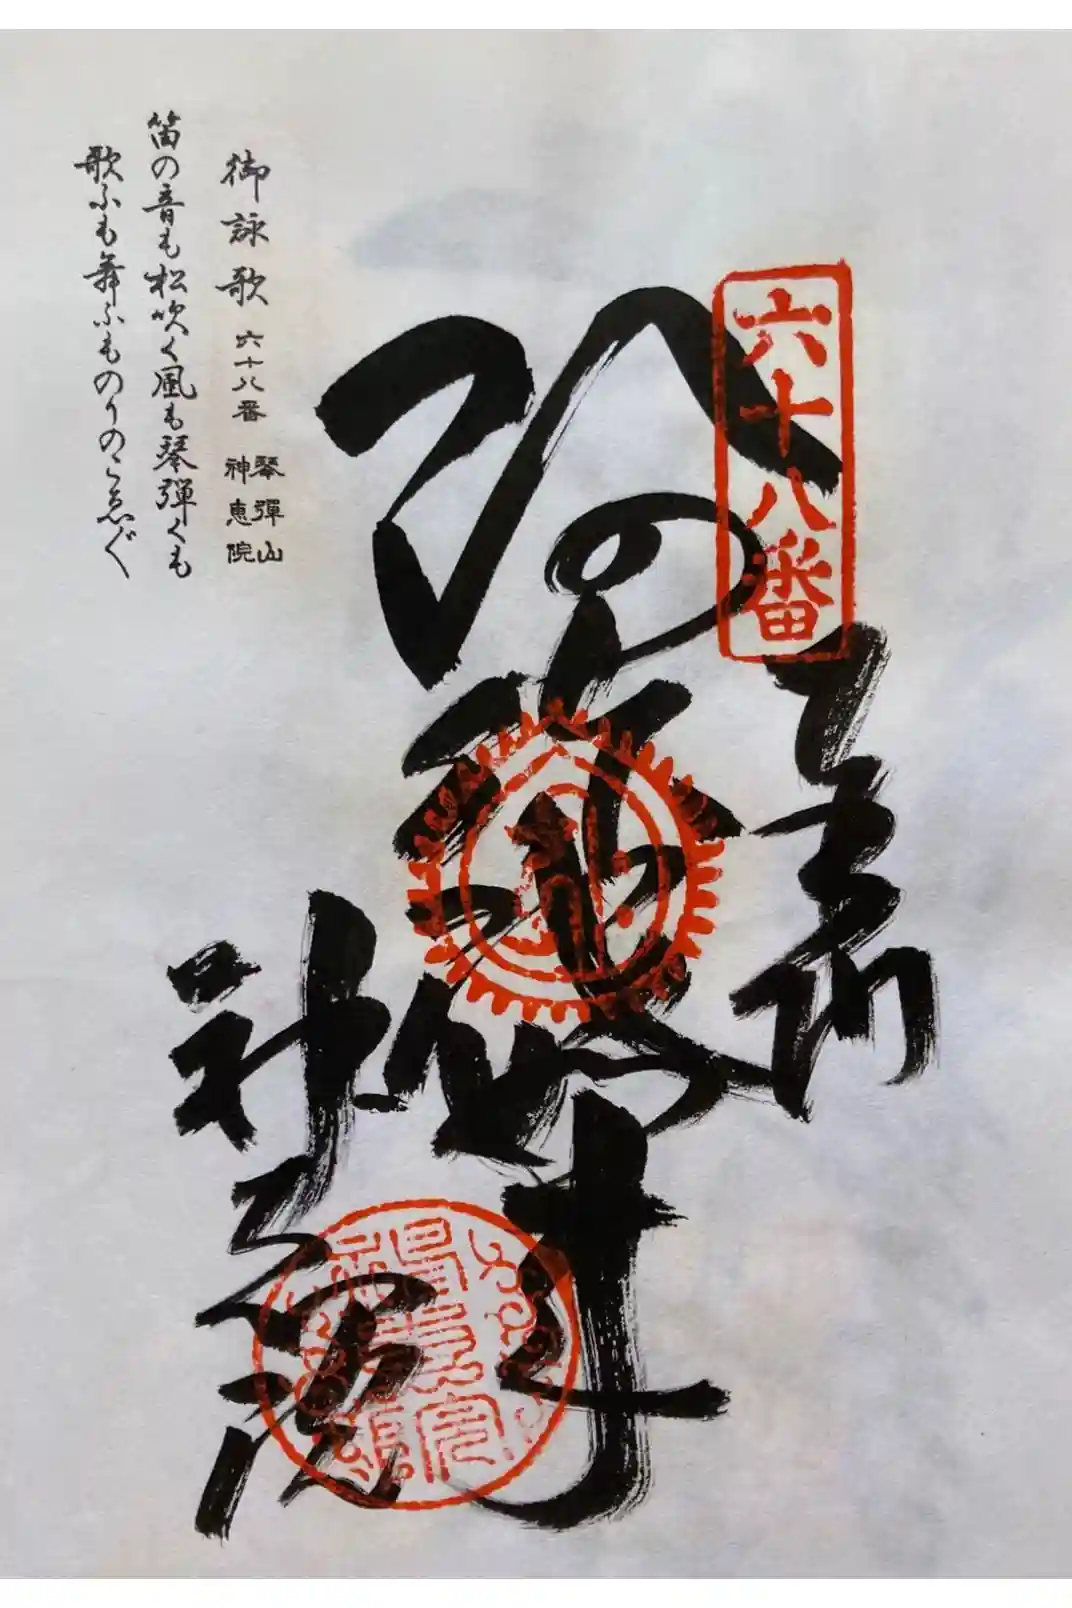 六十八番
奉納
阿弥陀如来
神恵院
御詠歌 六十八番 琴彈山 神恵院
笛の音も松吹く風も琴彈くも
歌ふも舞ふものりのこゑ〴〵